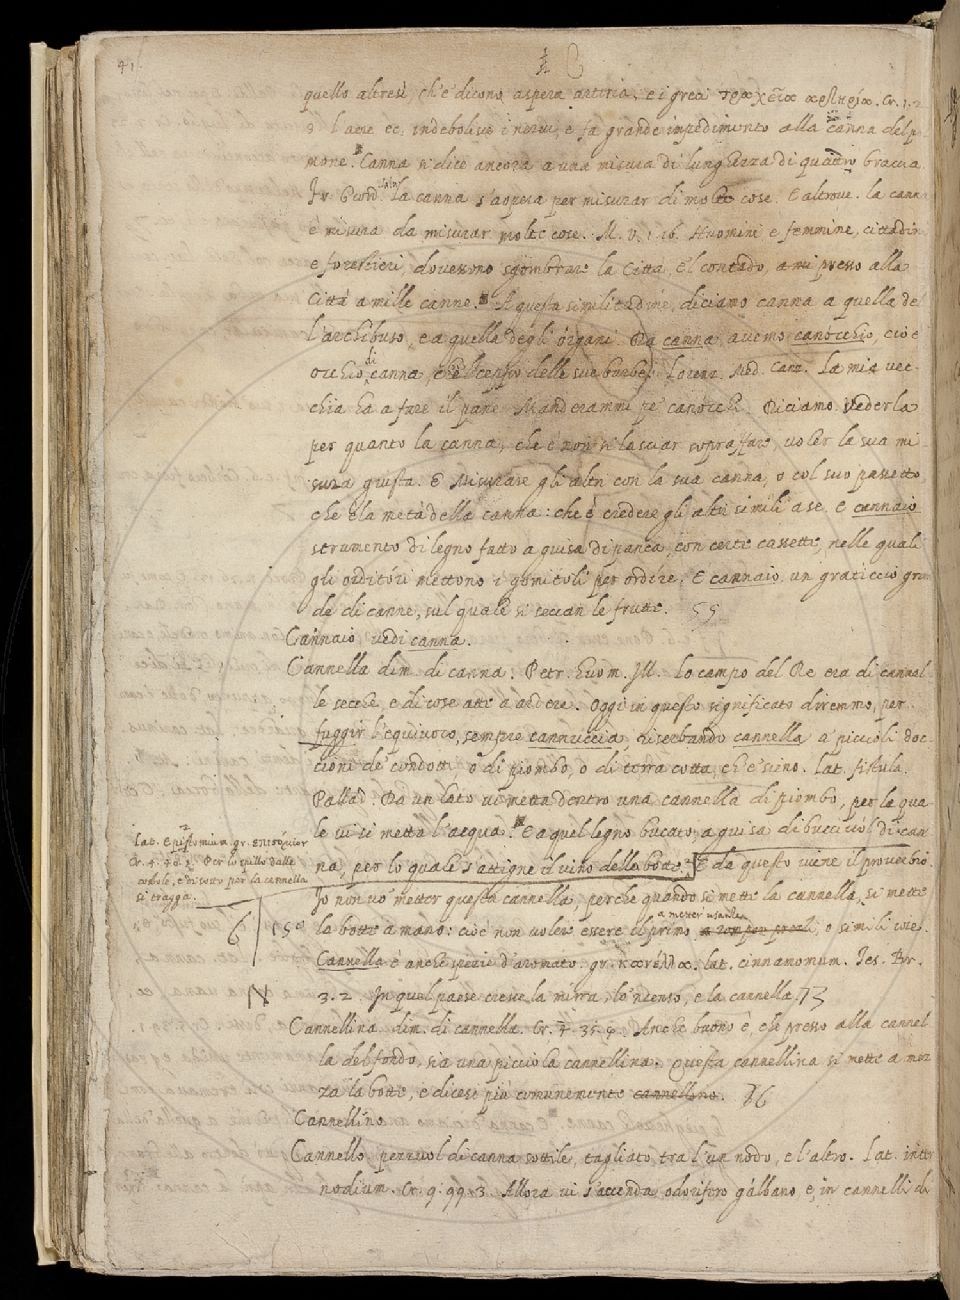 41
quello altresì, ch'e' dicono aspera arteria, e i greci τραχεῖα ἀρτηρία. Cr. 1. 2
9 l'aere ec. indebolisce i nervi, e fa grande impedimento alla canna del p-
mone. Canna si dice ancora a una misura di lunghezza di quattro braccia
Fr. Giord. Salv. La canna s'aopera per misurar di molte cose. E altrove. la canna
è misura da misurar molte cose. M. V. 1. 16. Huomini e femmine, cittadin
e forestieri, dovessono sgombrare la Città, e'l contado, presso alla
Città a mille canne. A questa similitudine, diciamo canna a quella del
l'archibuso, e a quella degli órgani. Da canna, avemo canócchio, cioè
occhio di canna, e il ceppo delle sue barbe. Lorenz. Med. Canz. La mia vec-
chia ha a fare il pane Manderammi pe' canocchi. Diciamo Vederla
per quanto la canna, che è non si lasciar sopraffare, voler la sua mi-
sura giusta. E Misurare gli altri con la sua canna, o col suo passetto
che è la metà della canna: che è credere gli altri simili a se, e cannaio
strumento di legno fatto a guisa di panca, con certe cassette, nelle quali
gli orditóri mettono i gomitoli per ordíre. E cannaio, un graticcio gran
de di canne, sul quale si seccan le frutte. 55
Cannaio vedi canna.
Cannella dim. di canna. Petr. huom. Ill. lo campo del Re era di cannel
le secche, e di cose atte a ardere. Oggi in questo significato diremmo, per
fuggir l'equivoco, sempre cannuccia, riserbando cannella a' piccioli doc-
cioni de' condotti, o di piombo, o di terra cotta, che sieno. lat. fistula.
Pallad. Da un lato vi metta dentro una cannella di piombo, per la qua-
le vi si metta l'acqua. E a quel legno bucato, a guisa di bucciuol di can
na, per lo quale s'attigne il vino della botte. E da questo viene il proverbio
lat. Epistomium gr. ἐπιστόμιον
Cr. 4. 40. 2. Per lo spillo dalle
cotole, e di sotto per la cannella
si tragga.
Io non vo' metter questa cannella, perchè quando si mette la cannella, si mette
la botte a mano: cioè non volere essere il primo a metter usanze, o simili cose.
6 150
Cannella è anche spezie d'aromato. gr. lat. cinnamomum. Tes. Br.
3. 2. In quel paese cresce la mirra, lo 'ncenso, e la cannella. 73
Cannellina. dim. di cannella. Cr. 4. 35. 9. Anche buono è, che presso alla cannel
la del fondo, sia una picciola cannellina. Questa cannellina si mette a mez
za la botte, e dicesi più comunemente cannellino. 76
Cannellíno.
Cannello. pezzuol di canna sottile, tagliato tra l'un nodo, e l'altro. Lat. inter
nodium. Cr. 9. 99. 3. Allora vi s'accenda odorifero gálbano, e in cannelli di